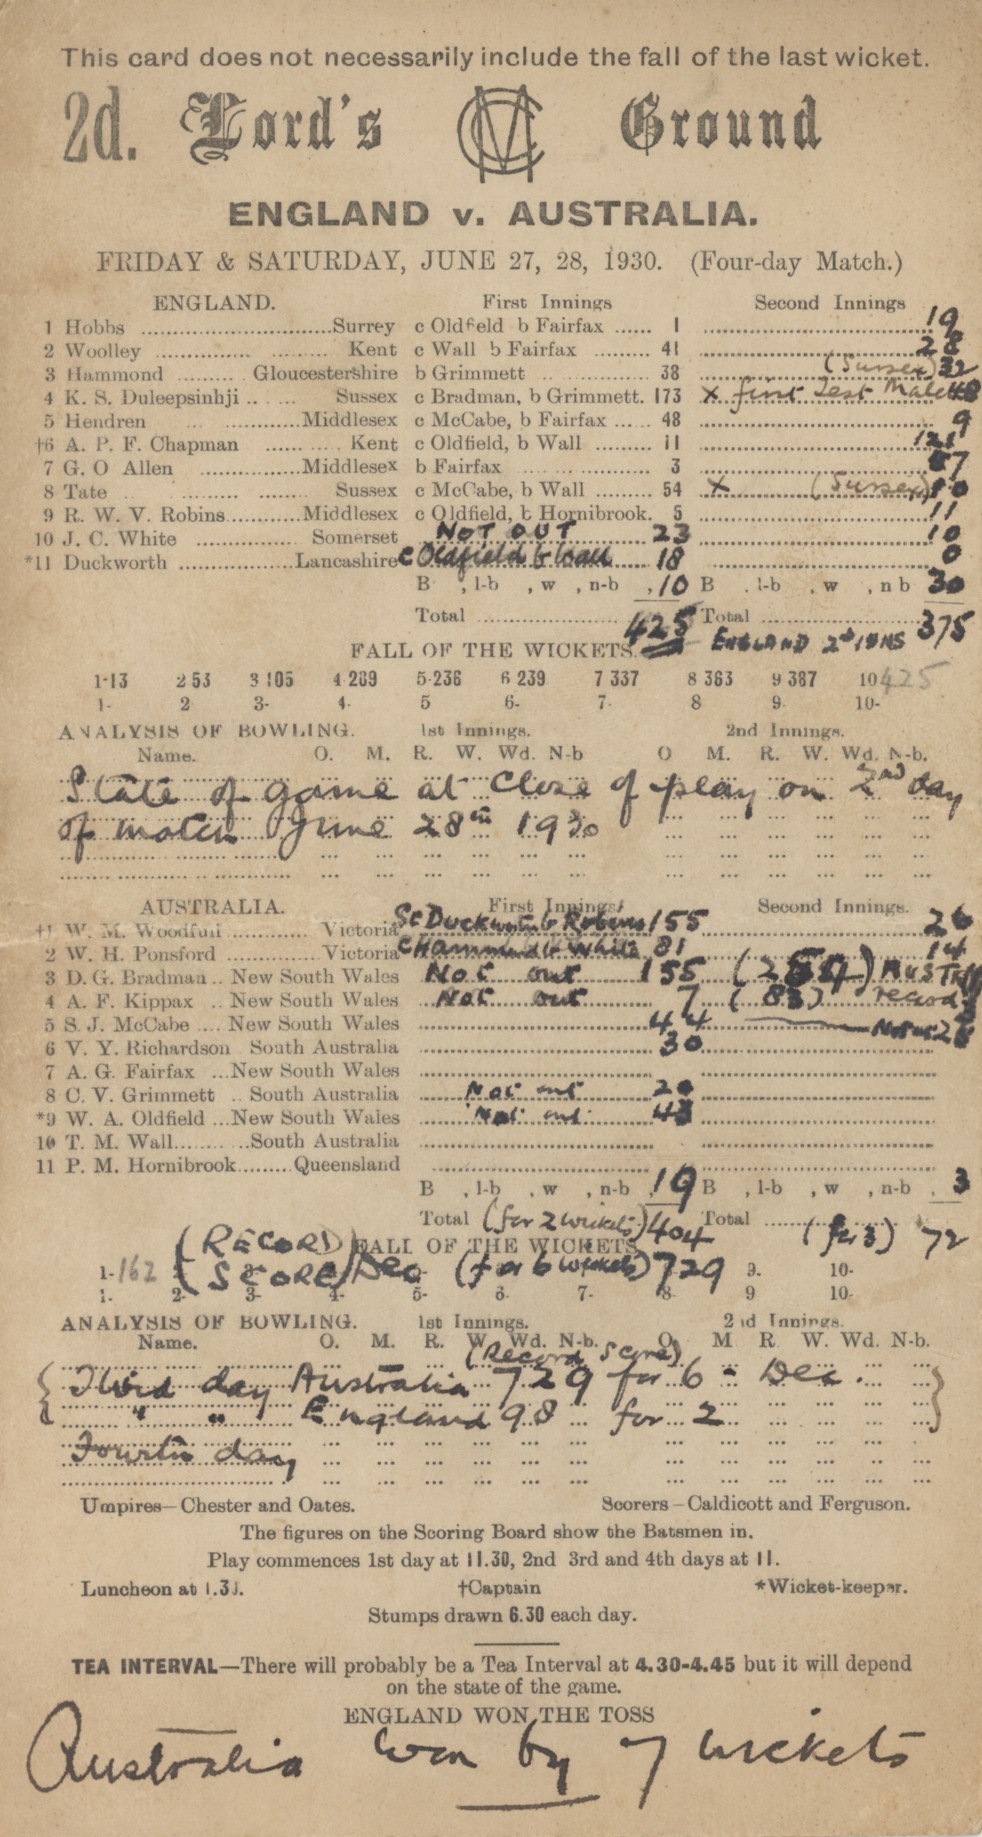 This card does not necessarily include the fall of the last wicket.
2d. Lord's MCC Ground
ENGLAND v. AUSTRALIA.
FRIDAY & SATURDAY, JUNE 27, 28, 1930. (Four-day Match.)
ENGLAND. First Innings Second Innings
1 Hobbs ..............................Surrey c Oldfield b Fairfax ...... 1 19
2 Woolley ............... ......... Kent c Wall b Fairfax ......... 41 28
3 Hammond ......... Gloucestershire b Grimmett .. ............ 38 (Sussex) 32
4 K. S. Duleepsinhji .. .. . Sussex c Bradman, b Grimmett. 173 x first Test Match 48
5 Hendren ...............Middlesex c McCabe, b Fairfax ..... 48 9
†6 A. P. F. Chapman ...... ... Kent c Oldfield, b Wall ...... 11 121
7 G. O Allen ...............Middlesex b Fairfax .................. 3 57
8 Tate .. ......... ........ Sussex c McCabe, b Wall ......... 54 x (Sussex) 10
9 R. W. V. Robins..........Middlesex c Oldfield, b Hornibrook. 5 11
10 J. C. White ............... Somerset NOT OUT 23 10
*11 Duckworth ................Lancashire c Oldfield b Wall 18 0
B , l-b , w , n-b , 10 B , l-b , w , n b 30
Total ..................... 425 Total ..................... 375
ENGLAND 2nd INNS
FALL OF THE WICKETS.
1-13 2 53 3 105 4 209 5-236 6 239 7 337 8 363 9 387 10 425
1- 2 3- 4- 5 6- 7- 8 9 10-
ANALYSIS OF BOWLING. 1st Innings. 2nd Innings.
Name. O. M. R. W. Wd. N-b O M. R. W. Wd. N-b.
State of game at close of play on 2nd day
of match June 28th 1930
AUSTRALIA. First Innings Second Innings.
†1 W. M. Woodfull ............ Victoria St Duckworth b Robins 155 26
2 W. H. Ponsford ...............Victoria c Hammond b White 81 14
3 D. G. Bradman .. New South Wales Not out 155 (254) Aust
4 A. F. Kippax .. New South Wales Not out 7 (83) record 3
5 S. J. McCabe .... New South Wales 44 Not out 25
6 V. Y. Richardson South Australia 30
7 A. G. Fairfax ...New South Wales
8 C. V. Grimmett .. South Australia Not out 20
*9 W. A. Oldfield ...New South Wales Not out 43
10 T. M. Wall...........South Australia
11 P. M. Hornibrook.........Queensland
B , l-b , w , n-b , 19 B , l-b , w , n-b , 3
Total (for 2 wickets) 404 Total .................. (for 3) 72
(RECORD FALL OF THE WICKETS
1-162 SCORE) Dec (for 6 wickets) 729 9. 10-
1- 2- 3- 4- 5- 6- 7- 8- 9 10-
ANALYSIS OF BOWLING. 1st Innings. 2nd Innings.
Name. O. M. R. W. Wd. N-b. O. M R W. Wd. N-b.
(Record Score)
Third day Australia 729 for 6 - Dec.
" " England 98 for 2
Fourth day
Umpires—Chester and Oates. Scorers—Caldicott and Ferguson.
The figures on the Scoring Board show the Batsmen in.
Play commences 1st day at 11.30, 2nd 3rd and 4th days at 11.
Luncheon at 1.30. †Captain *Wicket-keeper.
Stumps drawn 6.30 each day.
TEA INTERVAL—There will probably be a Tea Interval at 4.30-4.45 but it will depend
on the state of the game.
ENGLAND WON THE TOSS
Australia won by 7 wickets